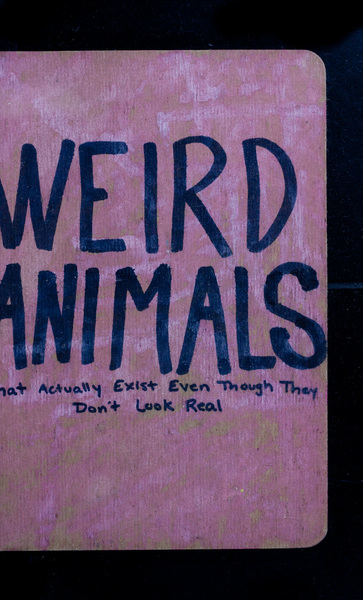 WEIRD
ANIMALS
hat Actually Exist Even Though They
Don't Look Real